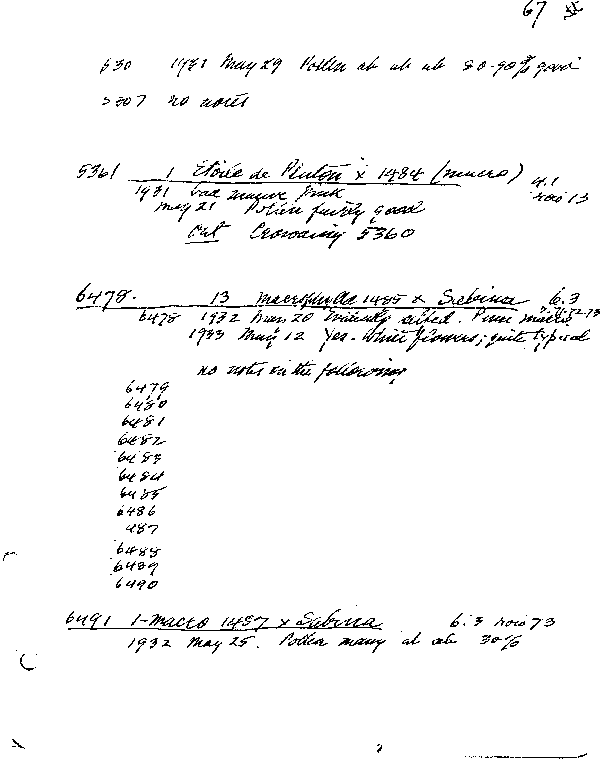 67
530 1931 May 29 Pollen ab ab ab 80-90% good
5307 no notes
5361 1 Etoile de Penton x 1484 (macro) 4.1
1931 mauve Pink row 13
May 21 Pollen fairly good
Cut Crowding 5360
6478. 13 macrophylla 1485 x Sabrina 6.3
6478 1932 Mar 20 Pure macro
1933 May 12 Yes. White flowers; quite typical
no notes on the following
6479
6480
6481
6482
6483
6484
6485
6486
487
6488
6489
6490
6491 1-macro 1487 x Sabrina 6.3 row 73
1932 May 25. Pollen many ab ab 30%